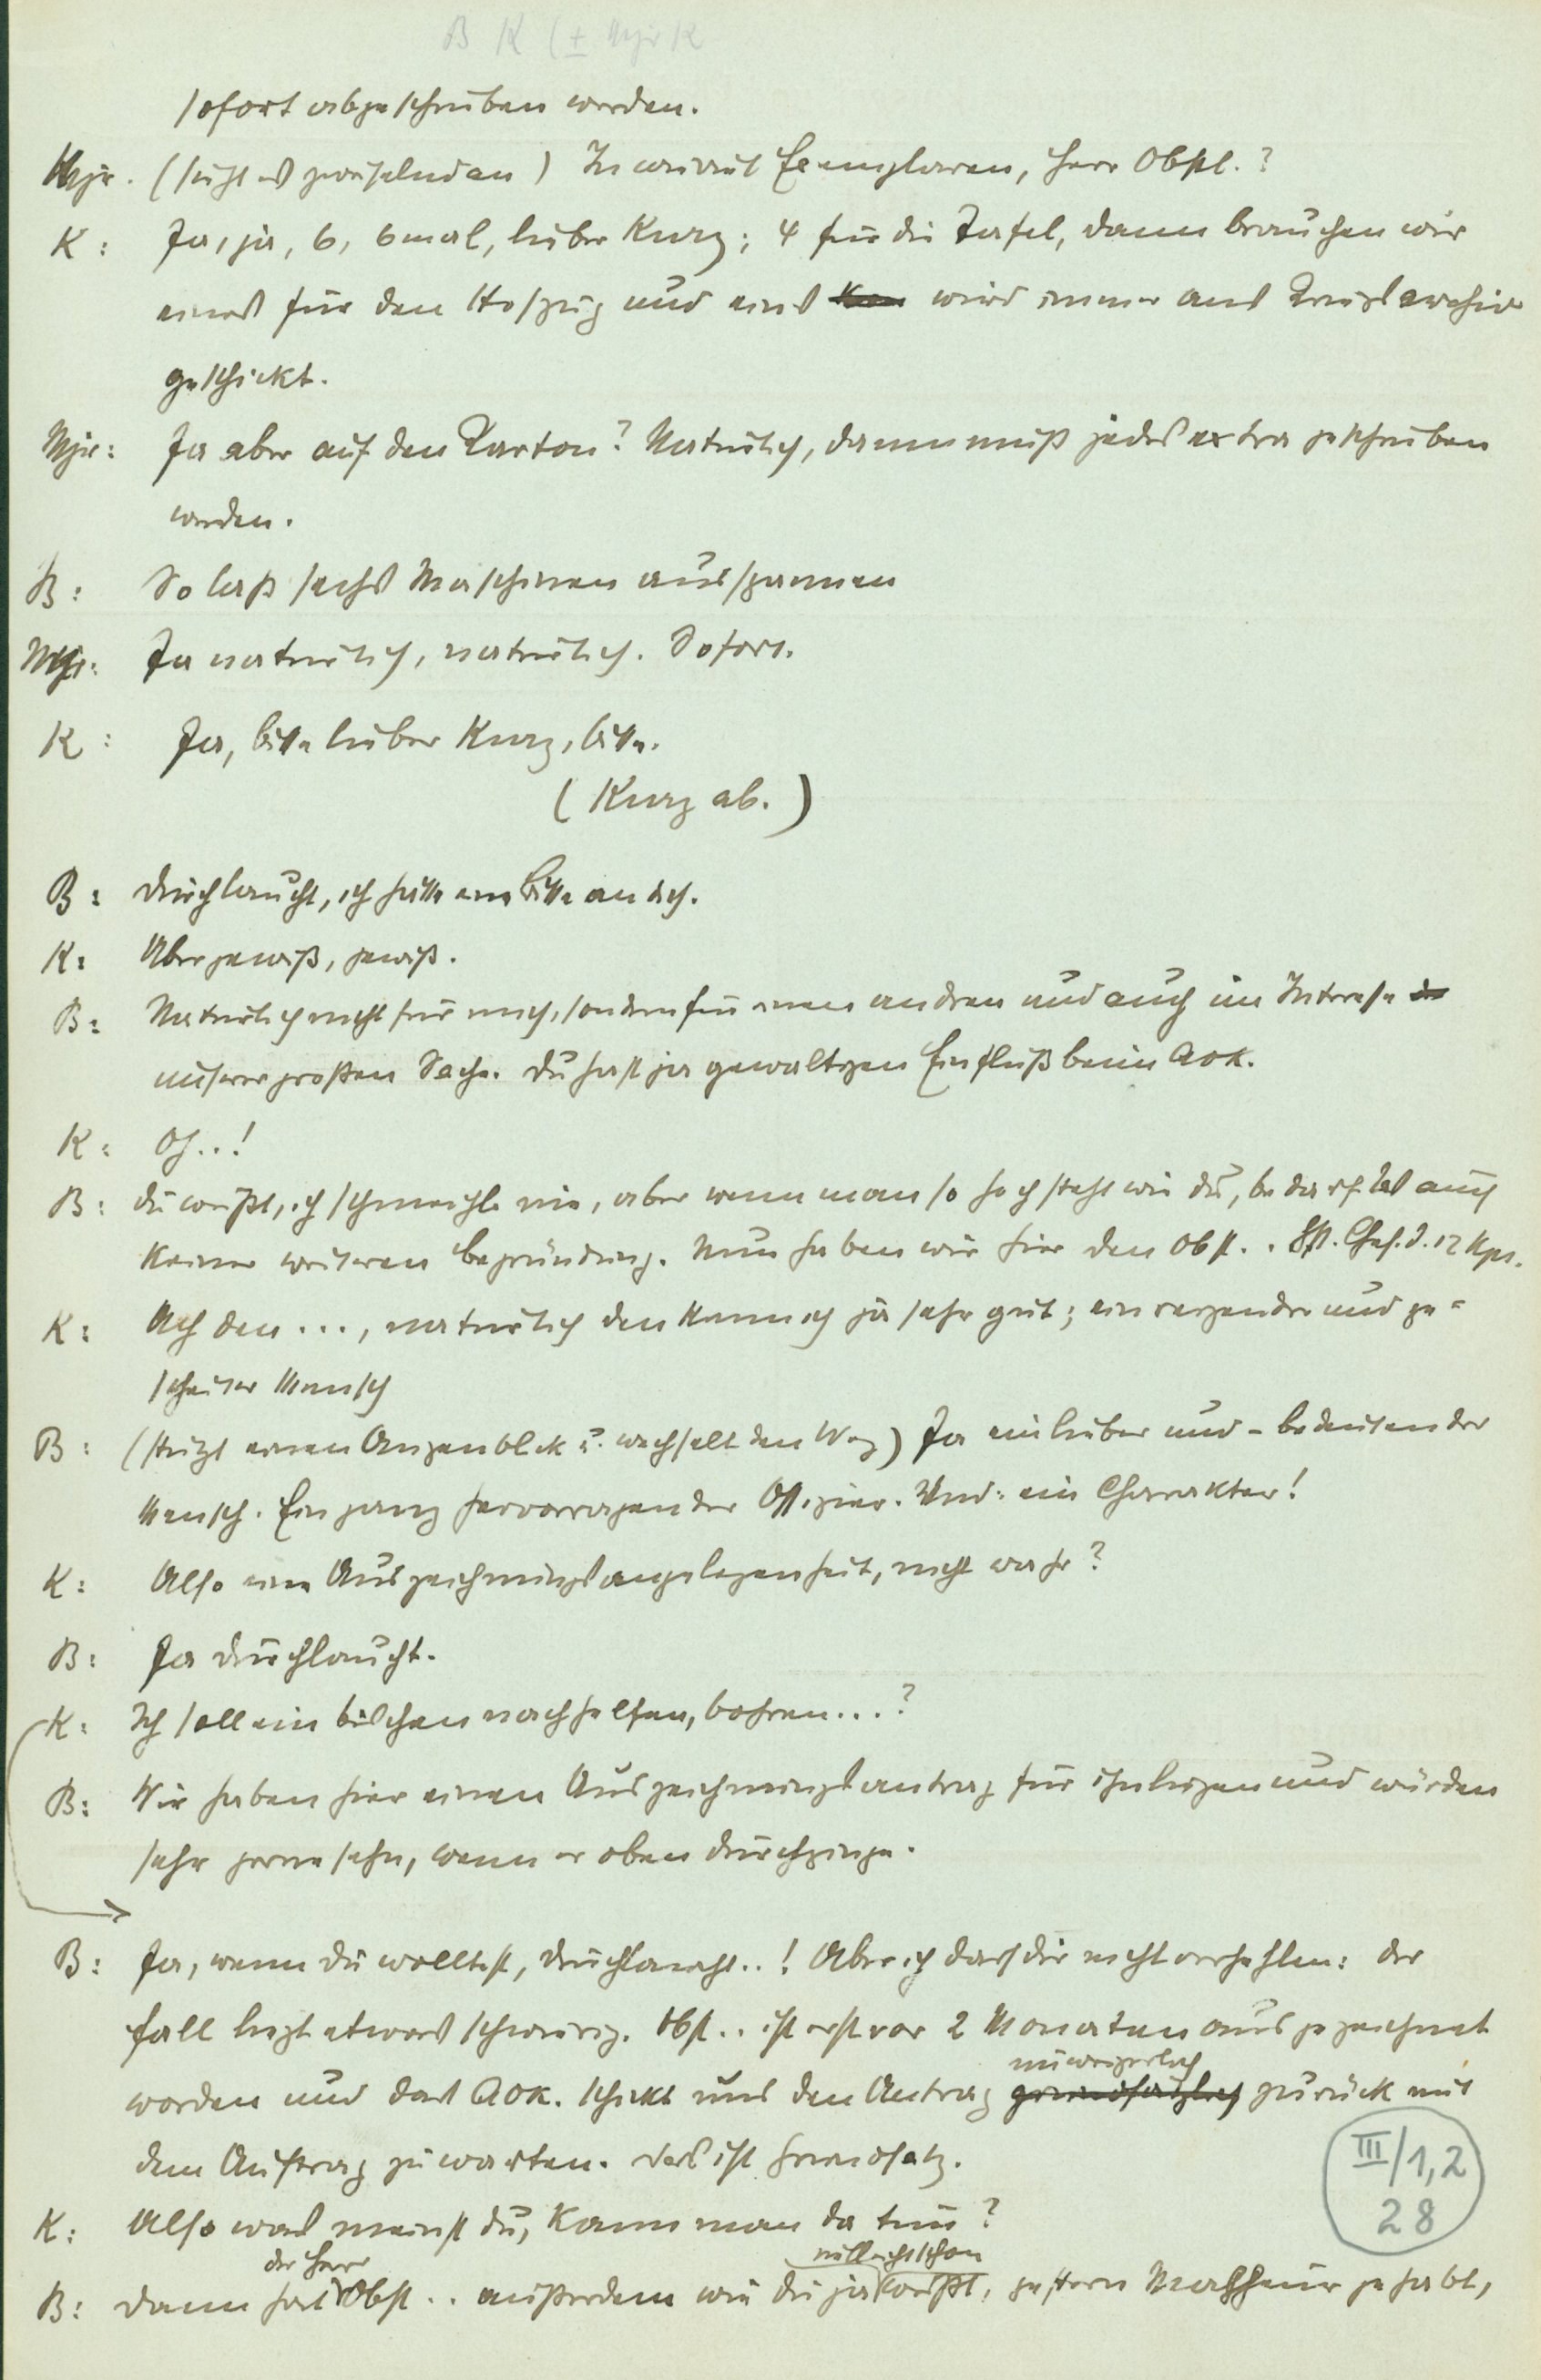 B K (± Mjr K
sofort abgeschrieben werden.
Mjr. (sieht es zweifelnd an) In wieviel Exemplaren, Herr Obstl.?
K: Ja, ja, 6, 6mal, lieber Kurz; 4 für die Tafel, dann brauchen wir
eines für den Hofzug und eines wird immer ans Kriegsarchiv
geschickt.
Mjr: Ja aber auf den Karton? Natürlich, dann muß jedes extra geschrieben
werden.
B: So laß sechs Maschinen ausspannen
Mjr: Ja natürlich, natürlich. Sofort.
K: Ja, bitte lieber Kurz, bitte.
(Kurz ab.)
B: Durchlaucht, ich hätte eine Bitte an dich.
K: Aber gewiß, gewiß.
B: Natürlich nicht für mich, sondern für einen andren und auch im Interesse
unserer großen Sache. Du hast ja gewaltigen Einfluß beim AOK.
K: Oh..!
B: Du weißt, ich schmeichle nie, aber wenn man so hoch steht wie du, bedarf es auch
keiner weiteren Begründung. Nun haben wir hier den Obst. . Gst. Chef. d. 12 Kps.
K: Ach den ..., natürlich den kenn ich ja sehr gut; ein reizender und ge-
scheiter Mensch
B: (stutzt einen Augenblick u. wechselt den Weg) Ja ein lieber und - bedeutender
Mensch. Ein ganz hervorragender Offizier. Und: ein Charakter!
K: Also eine Auszeichnungsangelegenheit, nicht wahr?
B: Ja Durchlaucht.
K: Ich soll ein bischen nachhelfen, bohren...?
B: Wir haben hier einen Auszeichnungsantrag für ihn liegen und würden
sehr gerne sehn, wenn er oben durchginge.
B: Ja, wenn du wolltest, Durchlaucht..! Aber ich darf dir nicht verhehlen: der
Fall liegt etwas schwierig. Obst.. ist erst vor 2 Monaten ausgezeichnet
unweigerlich
worden und das AOK. schickt uns den Antrag grundsätzlich zurück mit
dem Auftrag zu warten. Das ist Grundsatz.
III/1,2
28
K: Also was meinst du, kann man da tun?
der Herr vielleicht schon
B: Dann hat Obst.. außerdem wie du ja weißt, gestern Malheur gehabt,